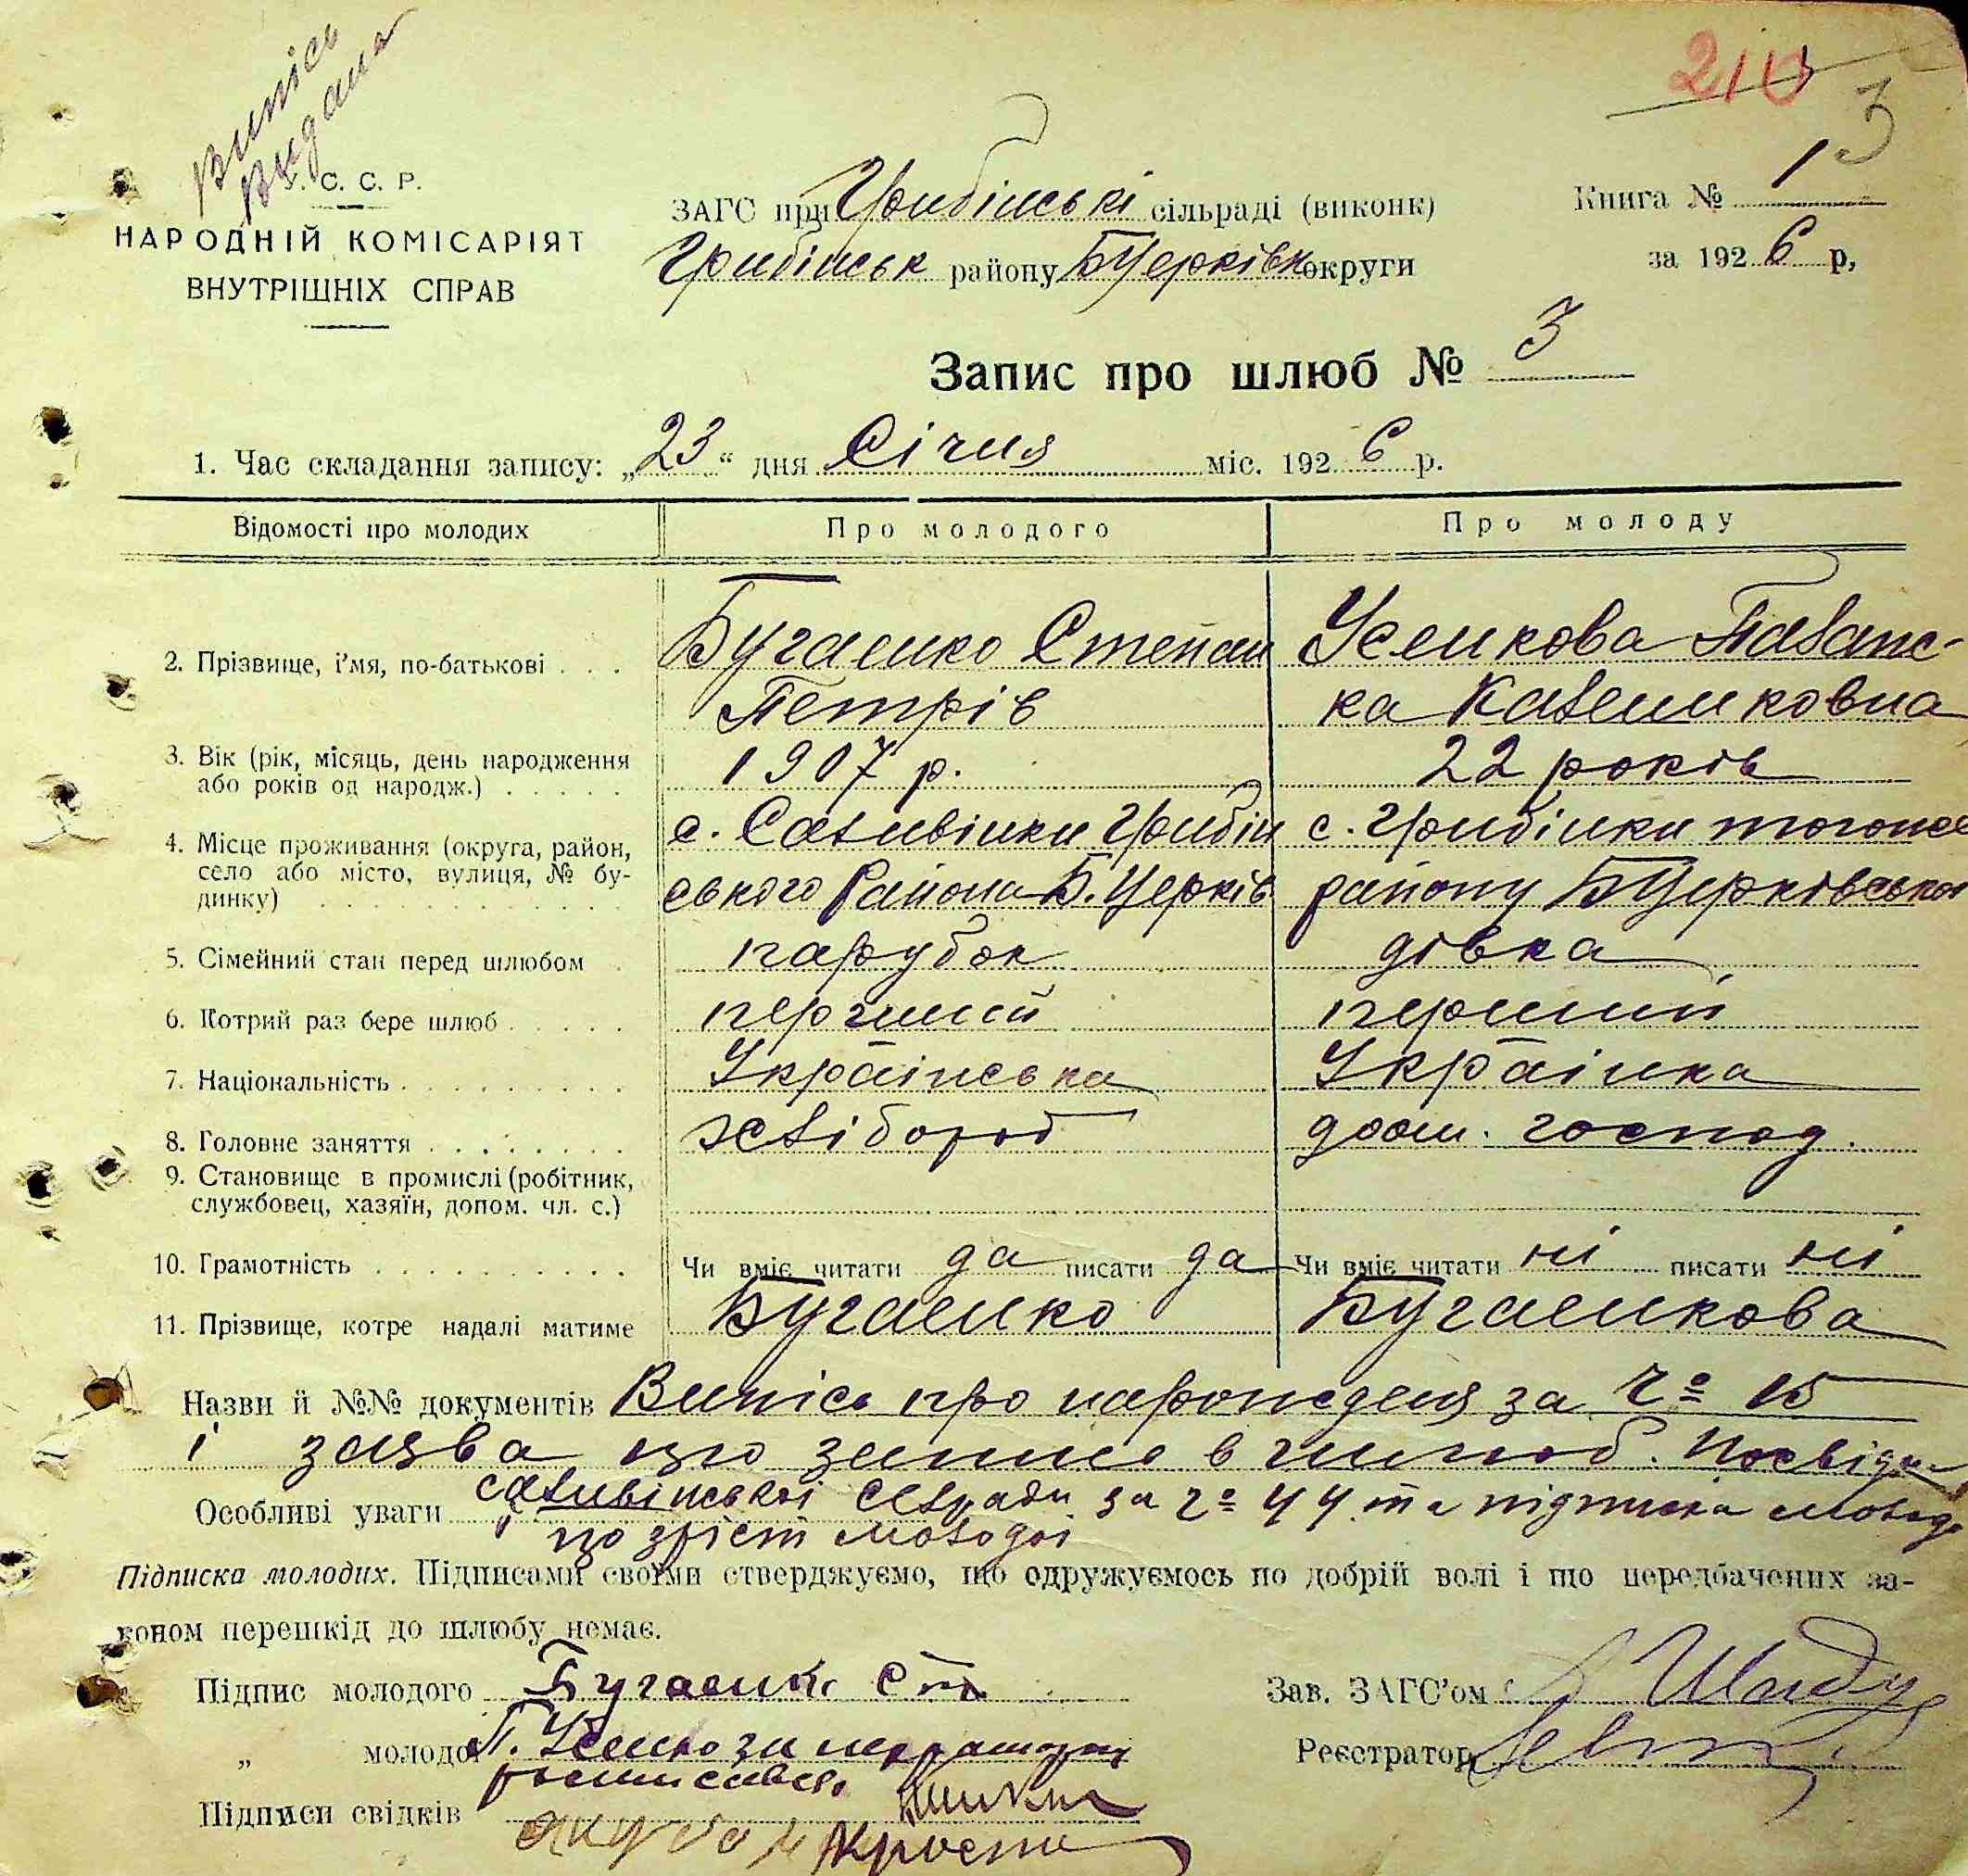 Випісь
видана
210
3
У. С. С. Р.
НАРОДНІЙ КОМІСАРІЯТ
ВНУТРІШНІХ СПРАВ
ЗАГС при Гребінські сільраді (виконк)
Гребінськ району БЦерківк округи
Книга № 1
за 1926 р,
Запис про шлюб № 3
1. Час складання запису: „23“ дня Січня міс. 1926 р.
Відомості про молодих
Про молодого
Про молоду
2. Прізвище, і'мя, по-батькові . . .
Бугаенко Степан
Петрів
Усенкова Палаж-
ка
3. Вік (рік, місяць, день народження
або років од народж.) . . . . .
1907 р.
22 років
4. Місце проживання (округа, район,
село або місто, вулиця, № бу-
динку) . . . . . . . . . .
с. Саливінки Гребін
ського Района Б. Церків
с. Гребінки тогоже
району БЦерківської
5. Сімейний стан перед шлюбом .
парубок
дівка
6. Котрий раз бере шлюб . . . . .
перший
перший
7. Національність . . . . . . . . .
Українська
Українка
8. Головне заняття . . . . . . . .
хлібороб
дом. господ.
9. Становище в промислі (робітник,
службовец, хазяїн, допом. чл. с.)
10. Грамотність . . . . . . . . . .
Чи вміє читати да писати да
Чи вміє читати ні писати ні
11. Прізвище, котре надалі матиме
Бугаенко
Бугаенкова
Назви й №№ документів Випісь про народженя за № 15
і заява про запис в шлюб. Посвідч
Особливі уваги Саливінської Сельради за № 44 та підписка молодо
по зрієт молодої
Підписка молодих. Підписами своїми стверджуємо, що одружуємось по добрій волі і що передбачених за-
коном перешкід до шлюбу немає.
Підпис молодого Бугаенко Ст
Зав. ЗАГС'ом
„ молодої П. Усенко за неграмотну
росписався
Реєстратор
Підписи свідків